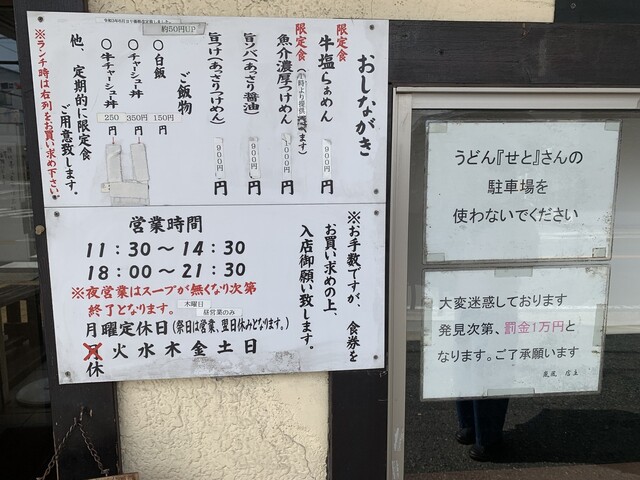 おしながき
限定食
牛塩らぁめん 900円
限定食
魚介濃厚つけめん
旨ソバ(あっさり醤油) 900円
旨つけ(あっさりつけめん) 900円
約50円UP
ご飯物
〇白飯 150円
〇チャーシュー丼 350円
〇牛チャーシュー丼 250円
他、定期的に限定食
ご用意致します。
※ランチ時は右列をお買い求め下さい。
※お手数ですが、食券を
お買い求めの上、
入店御願い致します。
営業時間
11:30〜14:30
18:00〜21:30
※夜営業はスープが無くなり次第
終了となります。
木曜日
昼営業のみ
月曜定休日(祭日は営業、翌日休みとなります。)
月火水木金土日
休
うどん『せと』さんの
駐車場を
使わないでください
大変迷惑しております
発見次第、罰金1万円と
なります。ご了承願います
店主